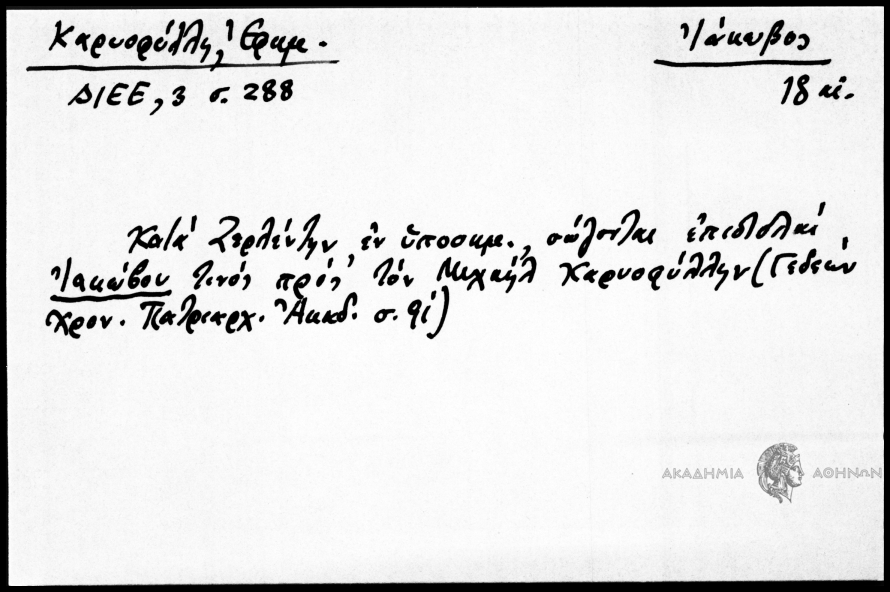 Καρυοφύλλη, Ἐφημ. Ἰάκωβος
ΔΙΕΕ, 3 σ. 288 18 αἰ.
Κατά Ζερλέντην ἐν ὑποσημ., σώζονται ἐπιστολαί
Ἰακώβου τινός πρός τόν Μιχαήλ Καρυοφύλλην (Γεδεών
Χρον. Πατριαρχ. Ἀκαδ. σ. 91)
ΑΚΑΔΗΜΙΑ ΑΘΗΝΩΝ